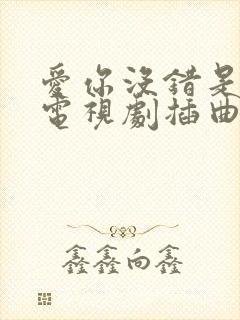 愛你沒錯是
電視劇插曲
鑫鑫向鑫